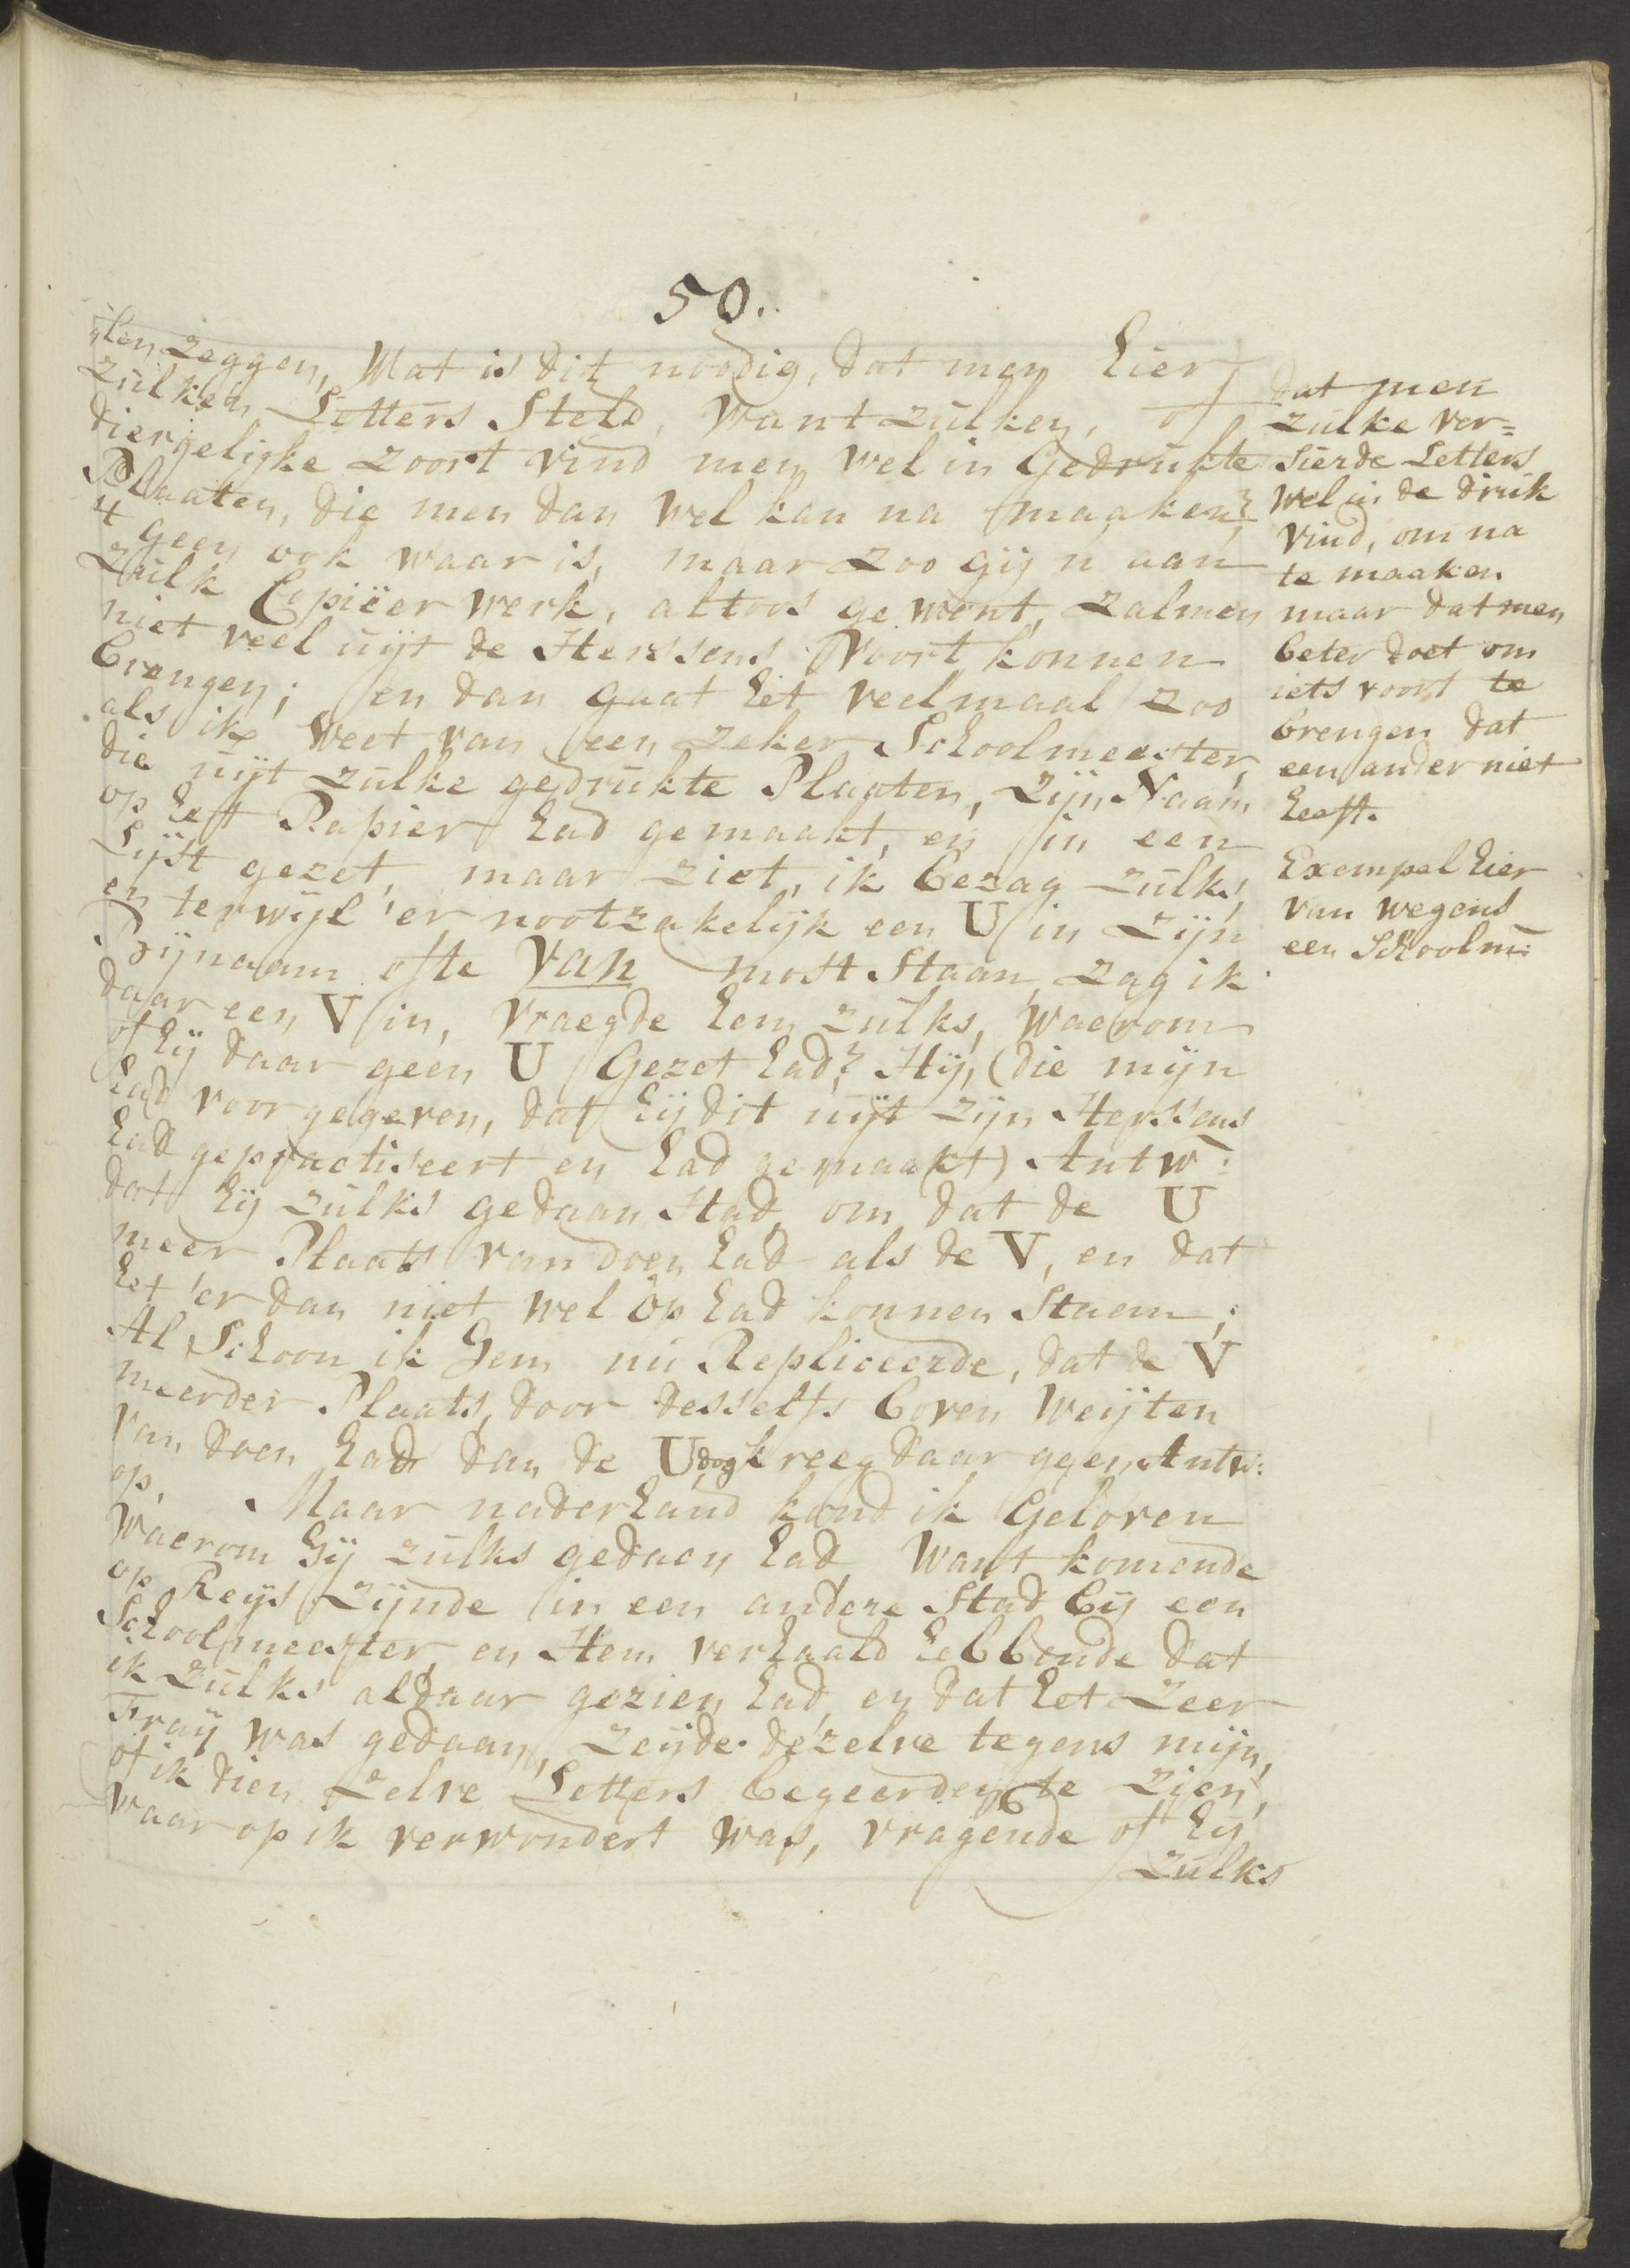 50.
ten zeggen, Wat is dit noodig, dat men hier
zulken Letters Steld, want zulken, of
diergelijke zoort vind men wel in Gedrukte
Plaaten, die men dan wel kan na maaken?
't geen ook waar is, maar zoo gij u aan
zulk Copiëer werk, altoos gewent, zal men
niet veel uijt de Herssens Voort konnen
brengen; en dan gaat het veelmaal zoo
als ik weet van een zeker Schoolmeester,
die uijt zulke gedrukte Plaaten, zijn Naam
op het Papier had gemaakt, en in een
Lijst gezet, maar ziet, ik bezag zulks,
en terwijl 'er nootzakelijk een U in zijn
Bijnaam ofte Van most Staan, zag ik
daar een V in, vraegde hem zulks, waerom
of hij daar geen U Gezet had? Hij, (die mijn
had voorgegeven, dat hij dit uijt zijn Herssens
had gepractiseert en had gemaakt) Antw:
dat hij zulks gedaan Had, om dat de U
meer Plaats van doen had als de V, en dat
het 'er dan niet wel op had konnen Staen;
Al Schoon ik Hem nu Repliceerde, dat de V
meerder Plaats, door desselfs boven weijten
van doen had dan de U, dog kreeg daar geen Antw:
op. Maar naderhand kond ik Geloven
Waerom Hij zulks gedaen had, Want komende
op Reijs zijnde in een andere Stad bij een
Schoolmeester, en Hem verhaald hebbende dat
ik zulks aldaar gezien had, en dat het zeer
Fraij was gedaan, zeijde dezelve tegens mijn,
of ik dien zelve Letters begeerden te zien,
waar op ik verwondert was, vragende of hij
zulks
dat men
zulke ver=
sierde Letters
wel in de druk
vind, om na
te maaken.
maar dat men
beter doet om
iets voort te
brengen dat
een ander niet
heeft.
Exempel hier
van wegens
een Schoolm: